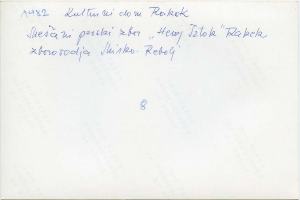 1982 Kulturni dom Rakek
Mešani pevski zbor „Heroj Iztok“ Rakek
zborovodja Mirko Rebolj
8